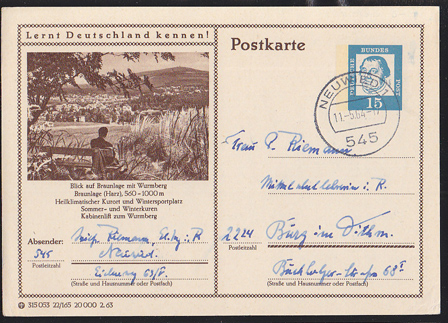 Lernt Deutschland kennen!
Postkarte
DEUTSCHE BUNDESPOST
15
NEUWIED 1
11.-5.64-17
545
Blick auf Braunlage mit Wurmberg
Braunlage (Harz), 560-1000 m
Heilklimatischer Kurort und Wintersportplatz
Sommer- und Winterkuren
Kabinenlift zum Wurmberg
Frau P. Riemann
Mittelschullehrerin i. R.
Absender:
Riemann, i. R.
545
Neuwied
Postleitzahl
63
(Straße und Hausnummer oder Postfach)
2224
Burg in Dithm.
Postleitzahl
Buchholzer 68
(Straße und Hausnummer oder Postfach)
315 053 22/165 20 000 2. 63